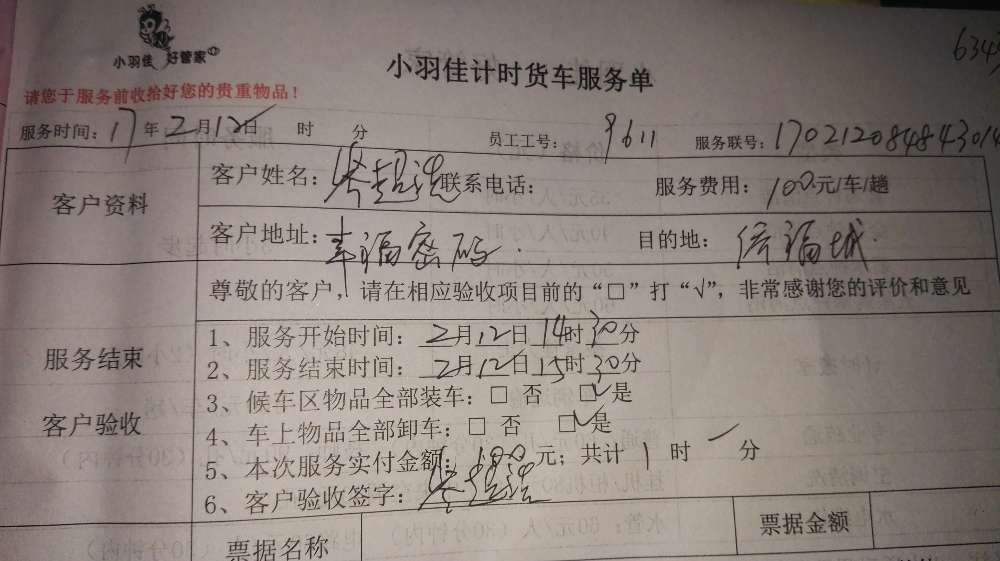 小羽佳 好管家
小羽佳计时货车服务单
请您于服务前收拾好您的贵重物品！
服务时间：17年2月12日 时 分 员工工号：9611 服务联号：
客户资料
客户姓名： 联系电话： 服务费用：100元/车/趟
客户地址：幸福密码 目的地：倍福城
尊敬的客户，请在相应验收项目前的“□”打“√”，非常感谢您的评价和意见
服务结束
客户验收
1、服务开始时间：2月12日14时30分
2、服务结束时间：2月12日15时30分
3、候车区物品全部装车：□ 否 ☑是
4、车上物品全部卸车：□ 否 ☑是
5、本次服务实付金额：100元；共计1时 分
6、客户验收签字：
票据名称 票据金额